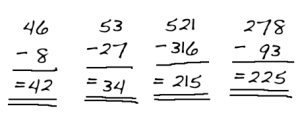 46 53 521 278
- 8 -27 -316 - 93
= 42 = 34 = 215 = 225